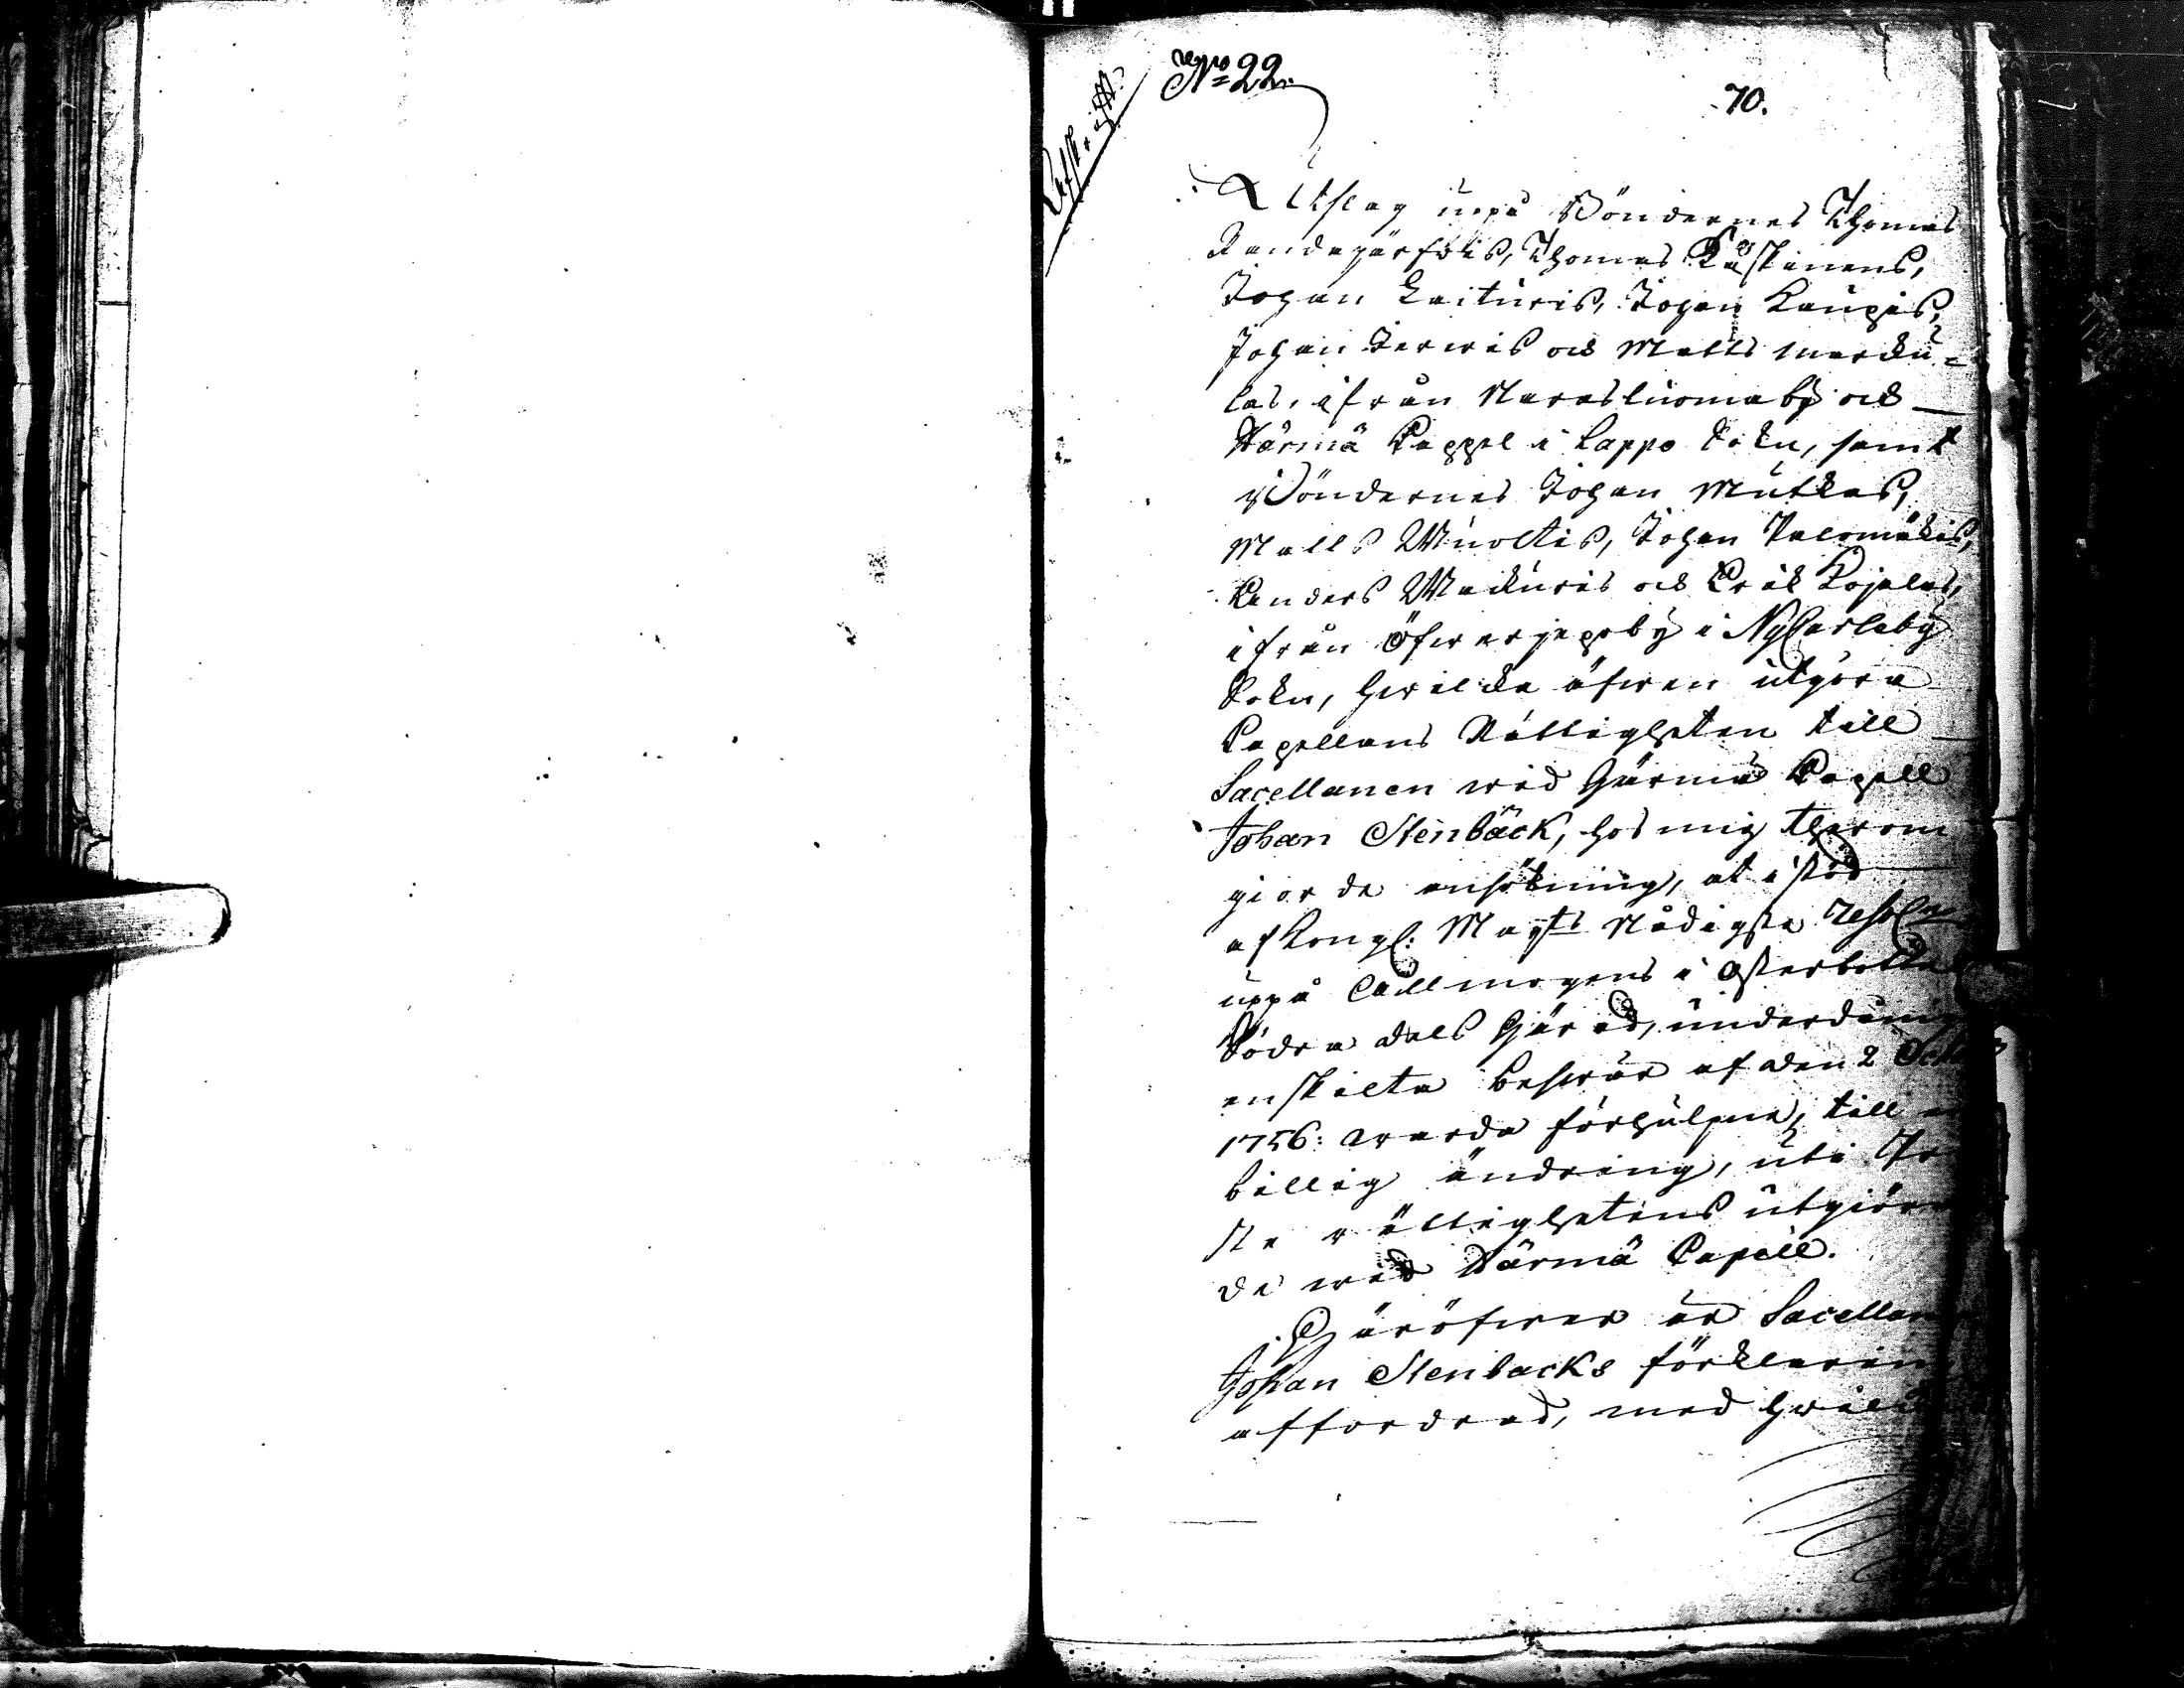 No 22.
70.
Afskrifft
Utslag uppå Böndernes Thomas
Randapärskis, Thomas Käskinens,
Johan Laituris, Johan Kaupis,
Johan Jerwis och Matts Marku=
las, ifrån Narasluoma by och
Härmä Cappel i Lappo Sokn, samt
Böndernes Johan Mutkas,
Matts Wuoltis, Johan Palomäkis,
Anders Wäckuris och Erik Kojolas,
ifrån Öfwerjepo by i NyCarleby
Sokn, hwilcka äfwen utgöra
Capellans Rättigheten till
Sacellanen wid Härmä Capell
Johan Stenbäck, hos mig therom
giorde ansökning, at i stöd
af Kongl: Mayts Nådigste Resol:n
uppå Allmogens i Österbottens
Södra dels Härad, underdånige
enskilta beswär af den 2 Octob
1756: warda förhulpne, till en
billig ändring, uti
sta rättighetens utgiöran
de wid Härmä Capell.
Häröfwer är Sacellanen
Johan Stenbacks förklaring
affordrad, med hwilken